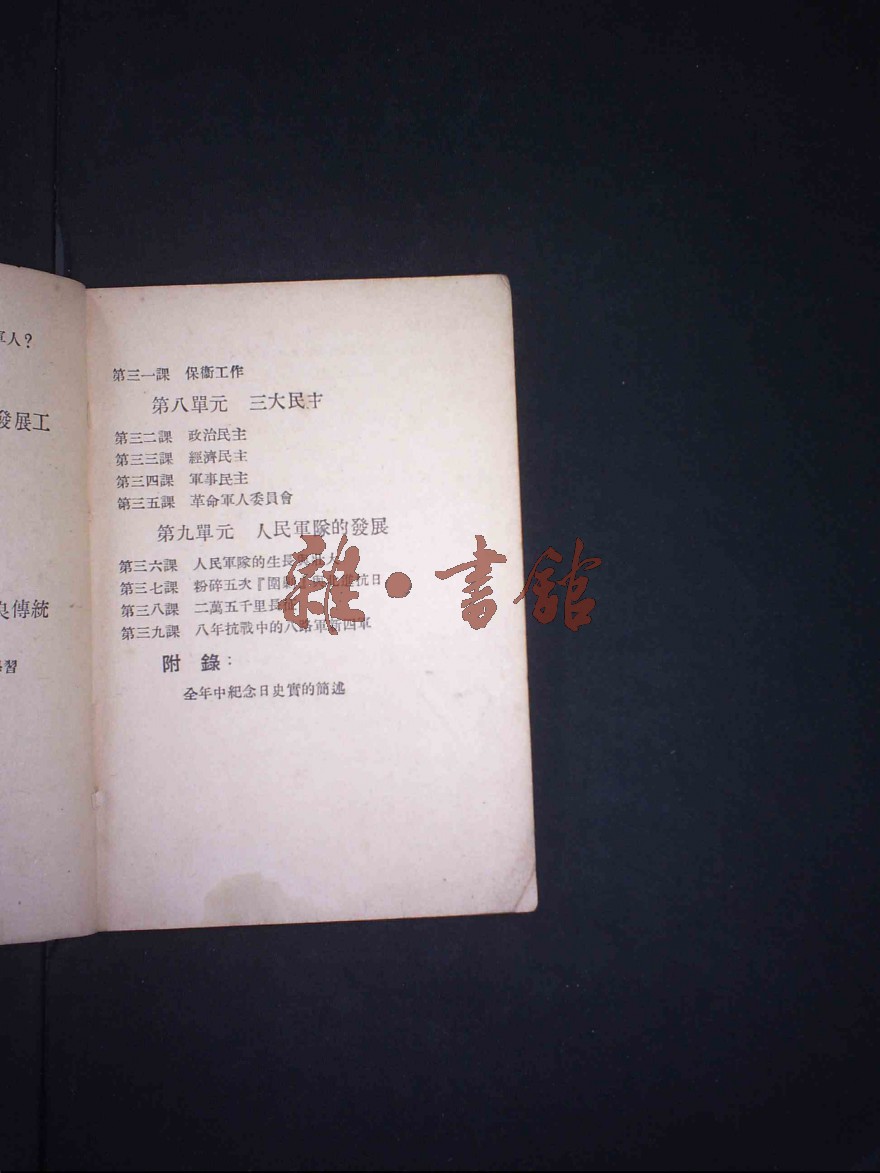 軍人？
發展工
良傳統
學習
第三一課 保衞工作
第八單元 三大民主
第三二課 政治民主
第三三課 經濟民主
第三四課 軍事民主
第三五課 革命軍人委員會
第九單元 人民軍隊的發展
第三六課 人民軍隊的生長與壯大
第三七課 粉碎五次『圍剿』與北進抗日
第三八課 二萬五千里長征
第三九課 八年抗戰中的八路軍新四軍
附錄：
全年中紀念日史實的簡述
雜·書館